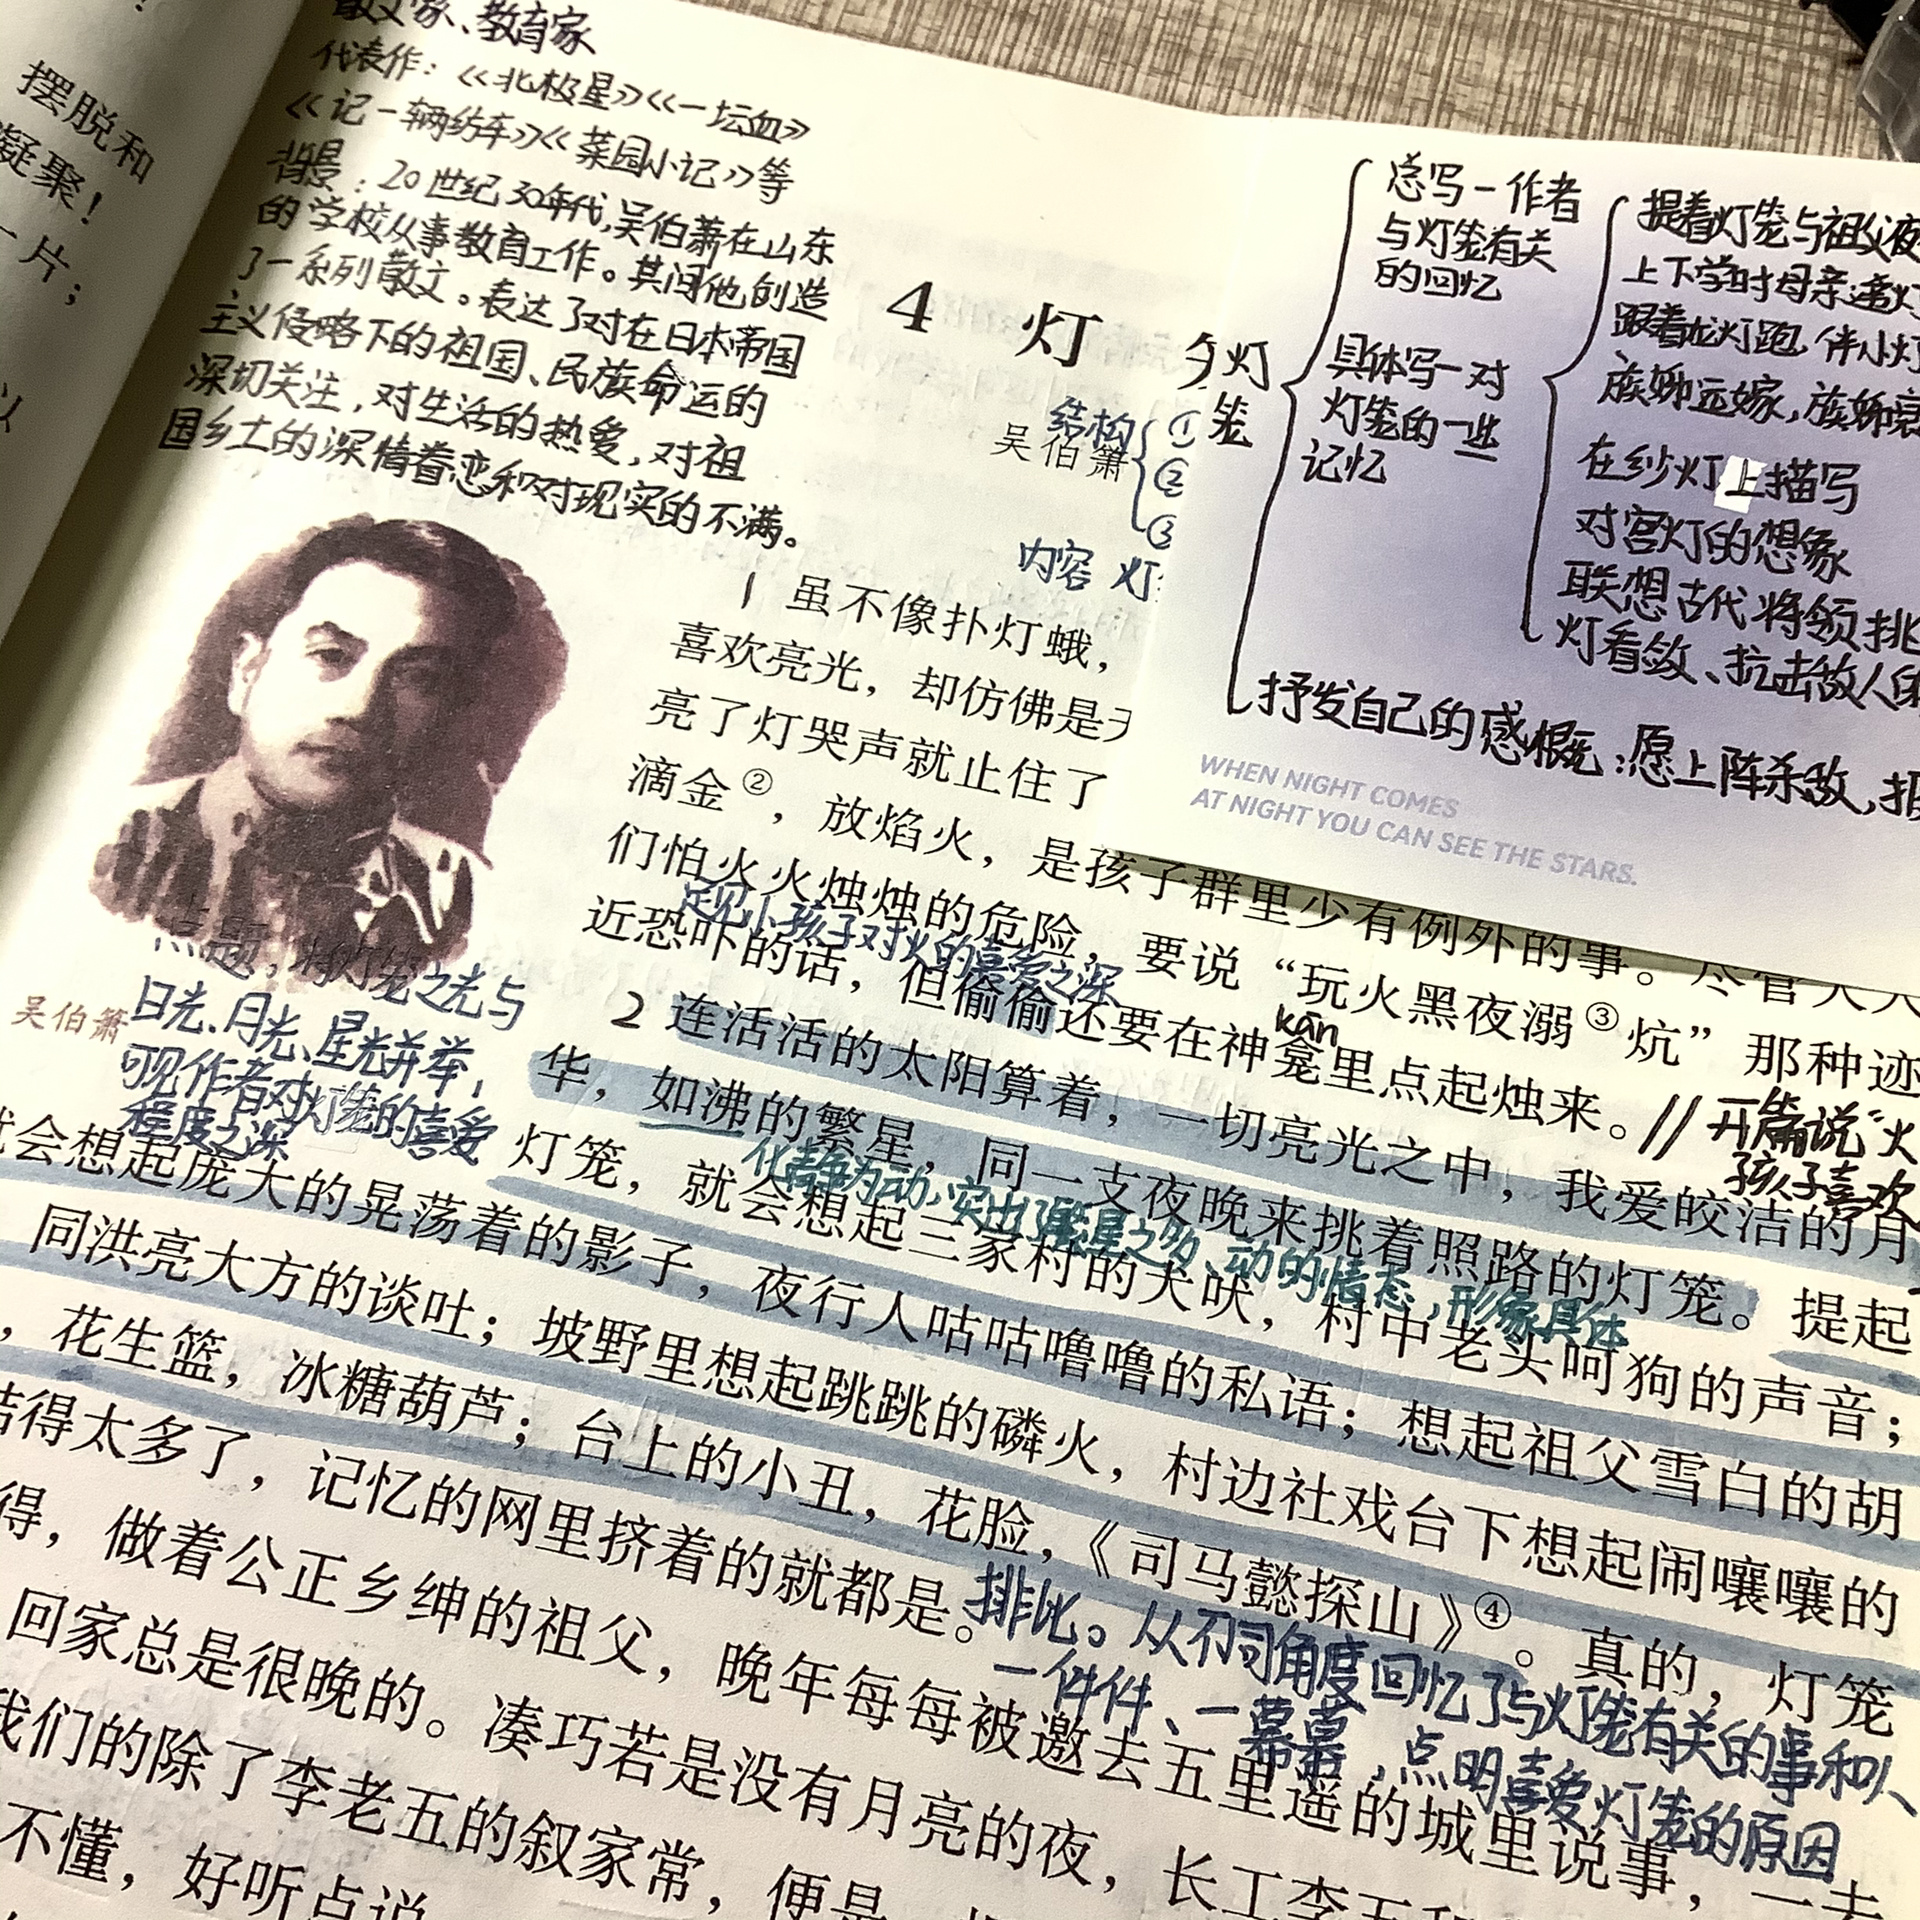 摆脱和
凝聚！
一片；
以
散文家、教育家
代表作：《北极星》《一坛血》
《记一辆纺车》《菜园小记》等
背景：20世纪30年代，吴伯萧在山东
的学校从事教育工作。其间他创造
了一系列散文。表达了对在日本帝国
主义侵略下的祖国、民族命运的
深切关注，对生活的热爱，对祖
国乡土的深情眷恋和对现实的不满。
4 灯
吴伯箫
结构
①
②
③
内容 灯
灯笼
总写一作者
与灯笼有关
的回忆
具体写一对
灯笼的一些
记忆
提着灯笼与祖父夜
上下学时母亲递灯
跟着龙灯跑，伴小灯
族姊远嫁，族姊
在纱灯上描写
对宫灯的想象
联想古代将领挑
灯看敛、抗击敌人的
抒发自己的感慨：愿上阵杀敌，报
WHEN NIGHT COMES
AT NIGHT YOU CAN SEE THE STARS.
1 虽不像扑灯蛾，
喜欢亮光，却仿佛是天
亮了灯哭声就止住了
滴金②，放焰火，是孩子群里少有例外的事。尽管大人
们怕火火烛烛的危险，要说“玩火黑夜溺③炕”那种迹
足见小孩子对火的喜爱之深
近恐吓的话，但偷偷还要在神龛里点起烛来。//
kān
开篇说“火
孩子喜欢
2 连活活的太阳算着，一切亮光之中，我爱皎洁的月
华，如沸的繁星，同一支夜晚来挑着照路的灯笼。提起
化静为动，突出了繁星之多、动的情态，形象具体
灯笼，就会想起三家村的犬吠，村中老头呵狗的声音；
点题，将灯笼之光与
日光、月光、星光并举，
可见作者对灯笼的喜爱
程度之深
吴伯箫
就会想起庞大的晃荡着的影子，夜行人咕咕噜噜的私语；想起祖父雪白的胡
同洪亮大方的谈吐；坡野里想起跳跳的磷火，村边社戏台下想起闹嚷嚷的
，花生篮，冰糖葫芦；台上的小丑，花脸，《司马懿探山》④。真的，灯笼
结得太多了，记忆的网里挤着的就都是。
排比。从不同角度回忆了与灯笼有关的事和人
一件件、一幕幕，点明喜爱灯笼的原因
得，做着公正乡绅的祖父，晚年每每被邀去五里遥的城里说事，一去
回家总是很晚的。凑巧若是没有月亮的夜，长工李五和
我们的除了李老五的叙家常，便是
不懂，好听点说